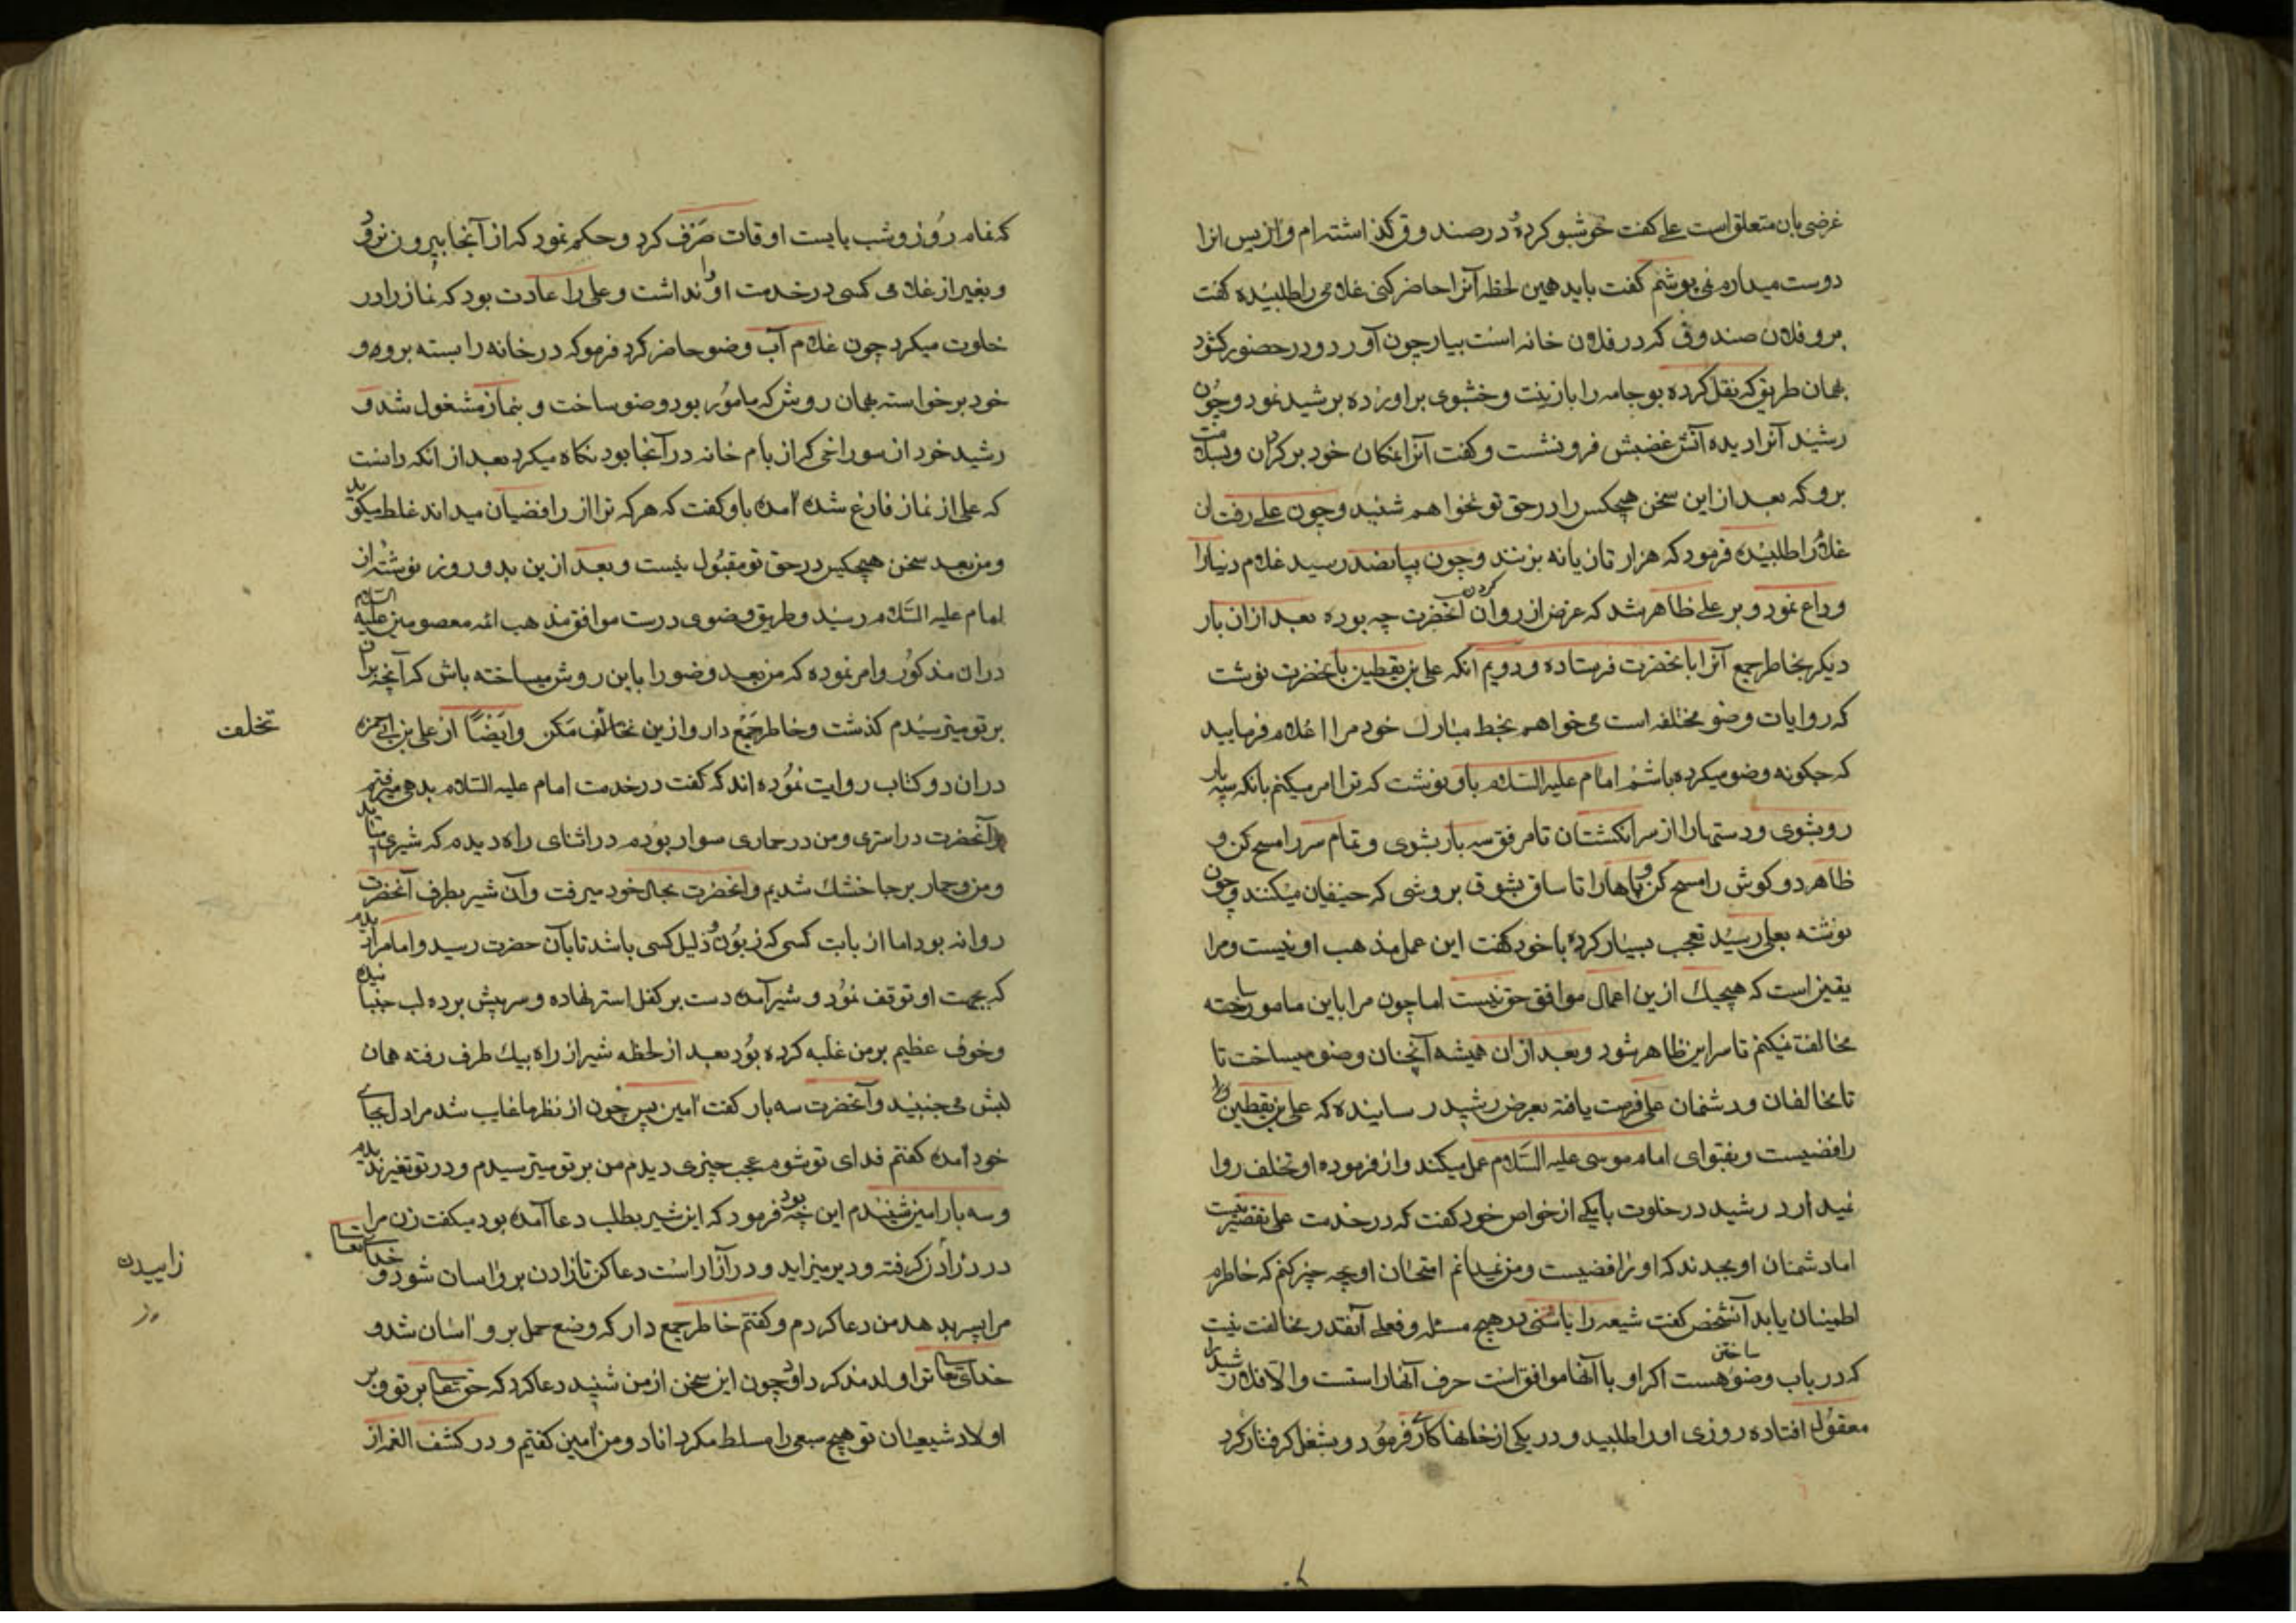 غرضی بان متعلق است علی گفت خوشبو کرده در صندوق گذاشته ام و از بس انرا
دوست میدارم نمی پوشم گفت باید همین لحظه آنرا حاضر کنی غلامی را طلبیده گفت
برو فلان صندوقی که در فلان خانه است بیار چون آورد و در حضور گشود
بهمان طریق که نقل کرده بو جامه را با زینت و خشبوی براورده برشید نمود و چون
رشید آنرا دیده آتش غضبش فرونشست و گفت آنرا بمکان خود برگردان و بسلامت
برو که بعد از این سخن هیچکس را در حق تو نخواهم شنید و چون علی رفت ان
غلام را طلبیده فرمود که هزار تازیانه بزنند و چون بپانصد رسید غلام دنیا را
وداع نمود و بر علی ظاهر شد که غرض از روان کردن آنحضرت چه بوده بعد ازان بار
دیگر بخاطر جمع آنرا بآنحضرت فرستاده و دویم انکه علی بن یقطین بآنحضرت نوشت
که روایات وضو مختلفه است می خواهم بخط مبارک خود مرا اعلام فرمایید
که چگونه وضو میکرده باشم امام علیه السلام باو نوشت که ترا امر میکنم بانکه سه بار
رو بشوی و دستها را از سر انگشتان تا مرفق سه بار بشوی و تمام سر را مسح کن و
ظاهر دو گوش را مسح کن و پاها را تا ساق بشوی بروشی که حنیفیان میکنند و چون
نوشته بعلی رسید تعجب بسیار کرده با خود گفت این عمل مذهب او نیست و مرا
یقین است که هیچیک ازین اعمال موافق حق نیست اما چون مرا باین مامور ساخته
مخالفت نمیکنم تا سر این ظاهر شود و بعد ازان همیشه آنچنان وضو میساخت تا
تا مخالفان و دشمنان علی فرصت یافته بعرض رشید رسانیده که علی بن یقطین
رافضیست و بفتوای امام موسی علیه السلام عمل میکند و از فرموده او تخلف روا
نمیدارد رشید در خلوت با یکی از خواص خود گفت که در خدمت علی تقصیر نیست
اما دشمنان او بجدند که او رافضیست و من نمیدانم امتحان او بچه چیز کنم که خاطرم
اطمینان یابد آنشخص گفت شیعه را با سنی در هیچ مسئله و فعلی آنقدر مخالفت نیست
که در باب وضو ساختن هست اگر او با آنها موافق است حرف آنها راستست والا فلا رشید را
معقول افتاده روزی او را طلبید و در یکی از خانها کاری فرمود و بشغل گرفتار کرد
که تمام روز و شب بایست اوقات صرف کرد و حکم نمود که از آنجا بیرون نرود
و بغیر از غلامی کسی در خدمت او نداشت و علی را عادت بود که نماز را در
خلوت میکرد چون غلام آب وضو حاضر کرد فرمو که در خانه را بسته برو و
خود برخواسته بهمان روش که مامور بود وضو ساخت و بنماز مشغول شد و
رشید خود از سوراخی که از بام خانه در آنجا بود نگاه میکرد بعد از انکه دانست
که علی از نماز فارغ شده آمده باو گفت که هر که ترا از رافضیان میداند غلط میگوید
و من بعد سخن هیچکس در حق تو مقبول نیست و بعد ازین بدو روز نوشته از
امام علیه السلام رسید و طریق وضوی درست موافق مذهب ائمه معصومین علیه السلام
دران مذکور و امر نموده که من بعد وضو را باین روش میساخته باش که آنچه بران
بر تو میترسیدم گذشت و خاطر جمع دار و ازین تخالف مکن و ایضا از علی بن ابی حمزه
دران دو کتاب روایت نموده اند که گفت در خدمت امام علیه السلام بدهی میرفتم
و آنحضرت در استری و من در حماری سوار بودم در اثنای راه دیدم که شیری
و من و حمار بر جا خشک شدیم و آنحضرت بحال خود میرفت و آن شیر بطرف آنحضرت
روانه بود اما از بابت کسی که زبون و ذلیل کسی باشد تا بآن حضرت رسید و امام را دیدم
که بجهت او توقف نمود و شیر آمده دست بر کفل استر نهاده و سر پیش برده لب جنبانیده
و خوف عظیم بر من غلبه کرده بود بعد از لحظه شیر از راه بیک طرف رفته همان
لبش می جنبید و آنحضرت سه بار گفت آمین پس چون از نظرها غایب شد مرا دل بجای
خود آمده گفتم فدای تو شوم عجب چیزی دیدم من بر تو میترسیدم و در تو تغیر ندیدم
و سه بار امین شنیدم این چه بود فرمود که این شیر بطلب دعا آمده بود میگفت زن مرا
درد زادن گرفته و دیر میزاید و در آزار است دعا کن تا زادن برو اسان شود و خدای تعالی
مرا پسر بدهد من دعا کردم و گفتم خاطر جمع دار که وضع حمل برو اسان شد و
خدای تعالی ترا ولد مذکر داد و چون این سخن از من شنید دعا کرد که حق تعالی بر تو و بر
اولاد شیعیان تو هیچ سبعی را مسلط مگرداناد و من آمین گفتیم و در کشف الغمه از
تخلف
زاییدن